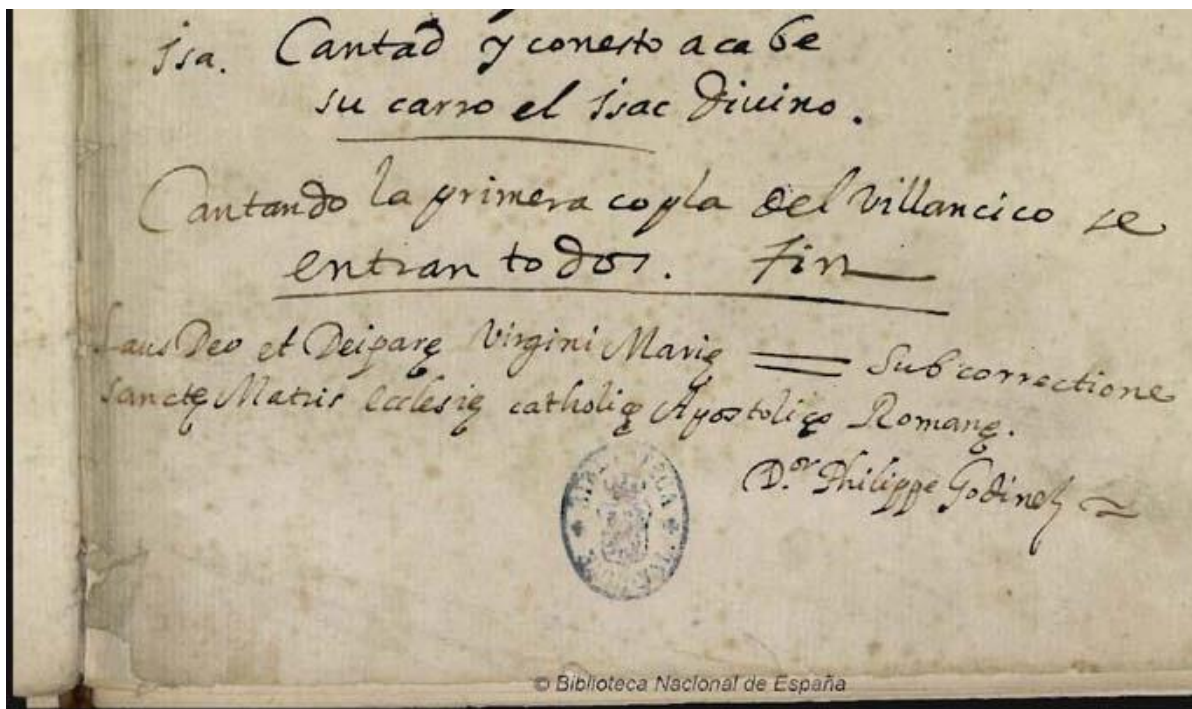 isa. Cantad y conesto acabe
su carro el isac Diuino.
Cantando la primera copla del villancico se
entran todos. Fin
Laus Deo et Deiparę Virgini Marię = Sub correctione
sanctę Matris Ecclesię catholicę Apostolicę Romanę.
D.or Philippe Godinez
BIBLIOTECA NACIONAL
© Biblioteca Nacional de España